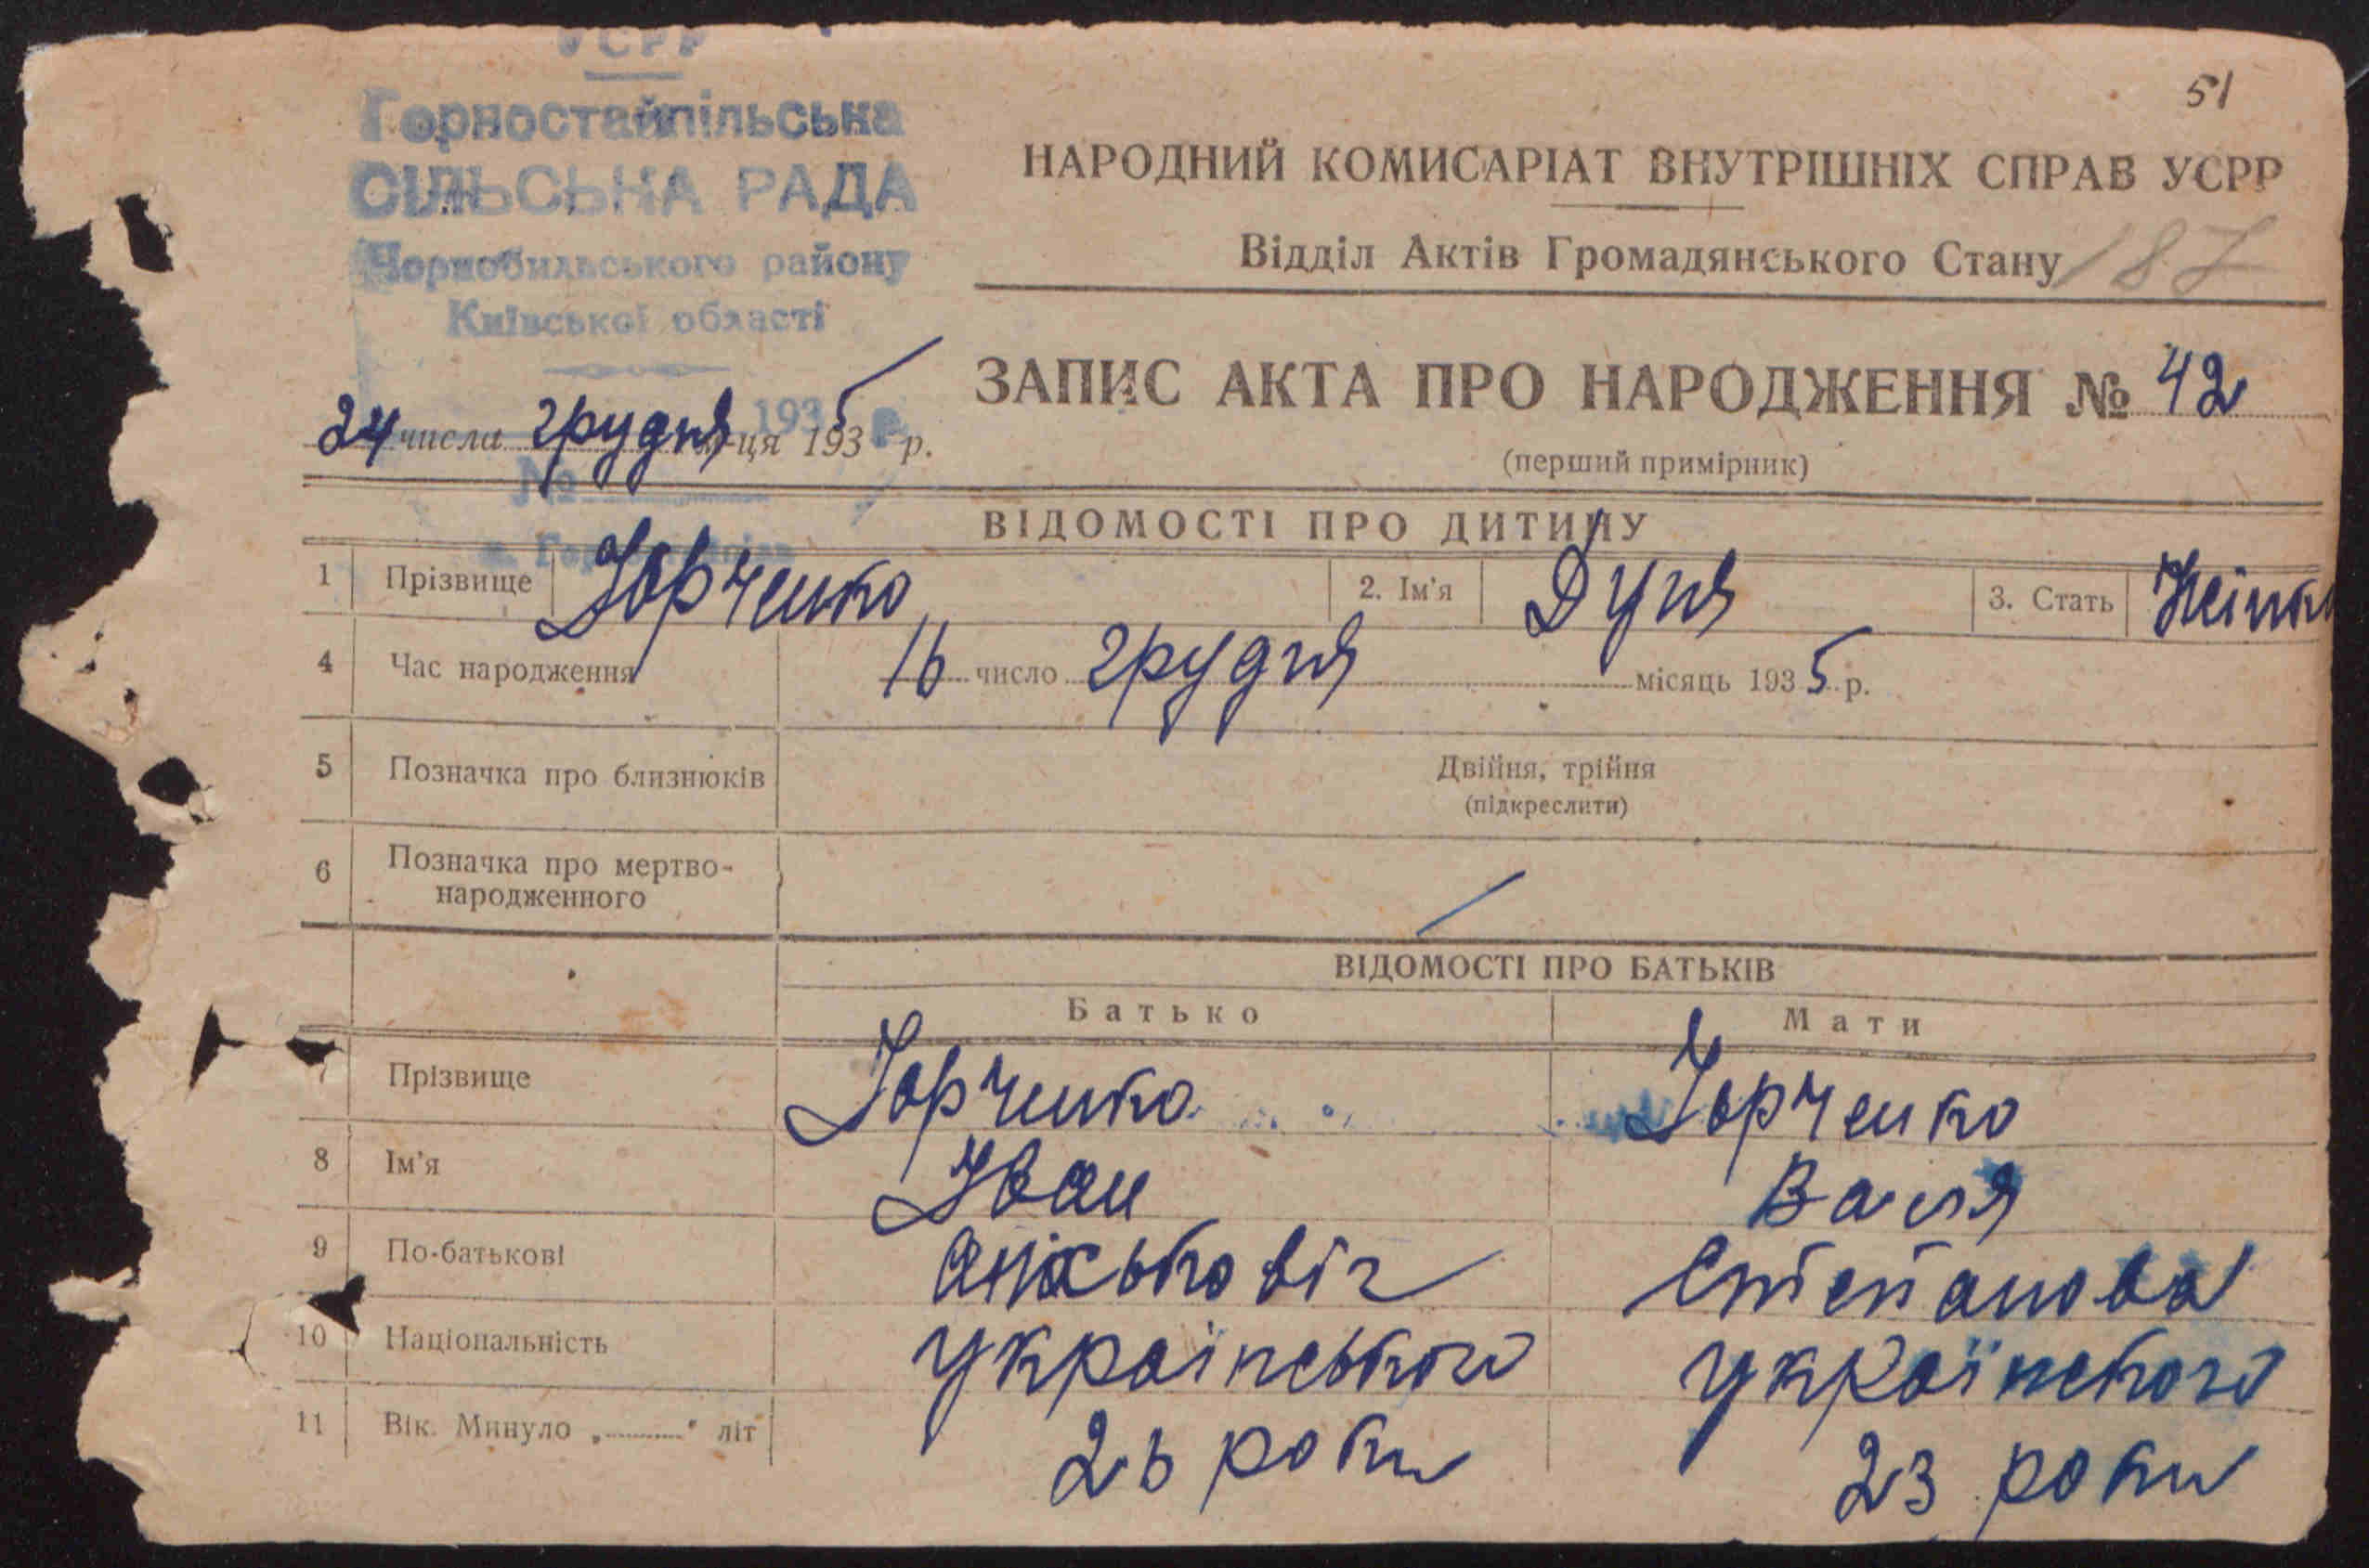 УСРР
Горностайпільська
СІЛЬСЬКА РАДА
Чорнобильського району
Київської області
193 р.
№
51
НАРОДНИЙ КОМИСАРІАТ ВНУТРІШНІХ СПРАВ УСРР
Відділ Актів Громадянського Стану
187
24 числа грудня м-ця 1935 р.
ЗАПИС АКТА ПРО НАРОДЖЕННЯ № 42
(перший примірник)
ВІДОМОСТІ ПРО ДИТИНУ
1 Прізвище Юрченко 2. Ім'я Дуня 3. Стать
4 Час народження 16 число грудня місяць 1935 р.
5 Позначка про близнюків Двійня, трійня
(підкреслити)
6 Позначка про мертво-
народженного
ВІДОМОСТІ ПРО БАТЬКІВ
Батько Мати
7 Прізвище Юрченко Юрченко
8 Ім'я Іван Валя
9 По-батькові Степанова
10 Національність українського українского
11 Вік. Минуло „ " літ 26 роки 23 роки